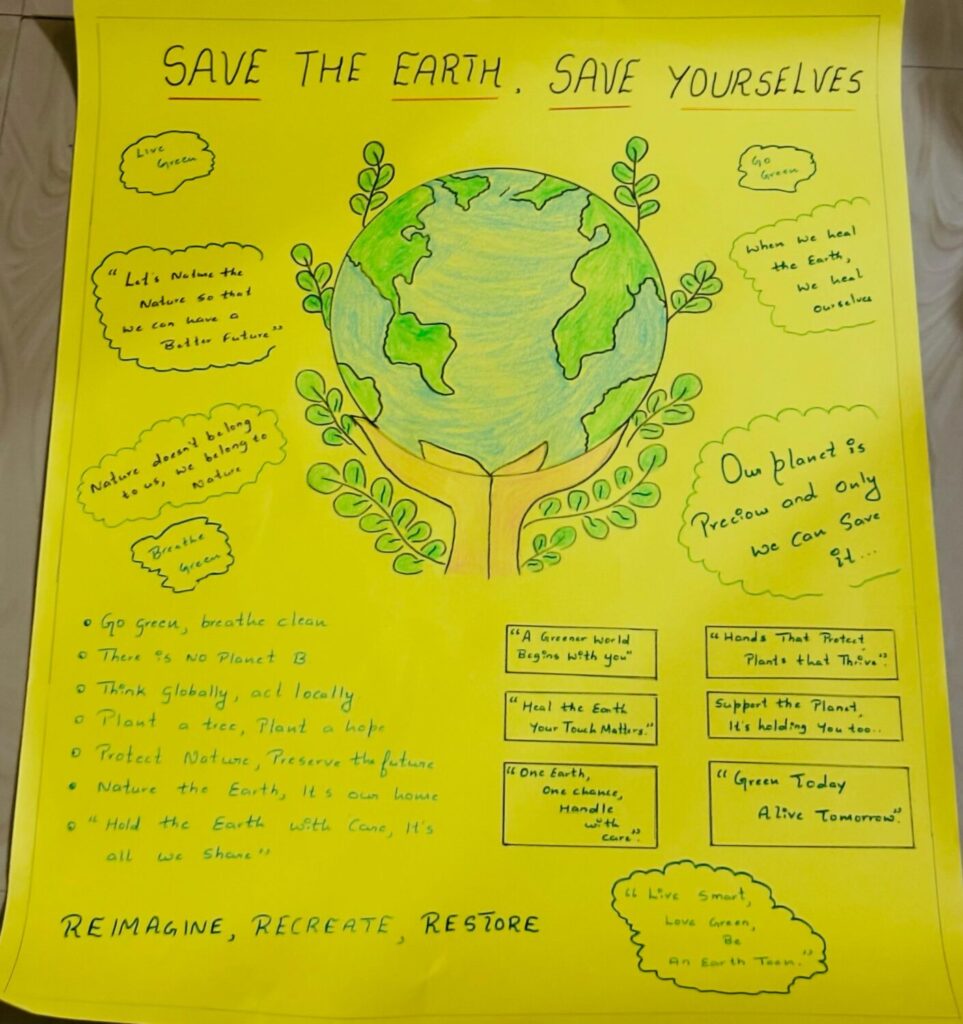 SAVE THE EARTH, SAVE YOURSELVES
Live
Green
Go
Green
"Let's Nature the
Nature so that
we can have a
Better Future"
When we heal
the Earth,
we heal
ourselves
Nature doesn't belong
to us, we belong to
Nature
Our planet is
Precious and only
we can Save
it...
Breathe
Green
Go green, breathe clean
There is No Planet B
Think globally, act locally
Plant a tree, Plant a hope
Protect Nature, Preserve the future
Nature the Earth, It's our home
"Hold the Earth with Care, It's
all we share"
"A Greener World
Begins with you"
"Hands That Protect
Plants that Thrive".
"Heal the Earth
Your Touch Matters."
Support the Planet,
It's holding you too..
"One Earth,
One chance,
Handle
with
care".
"Green Today
Alive Tomorrow."
REIMAGINE, RECREATE, RESTORE
"Live Smart,
Love Green,
Be
An Earth Teen."